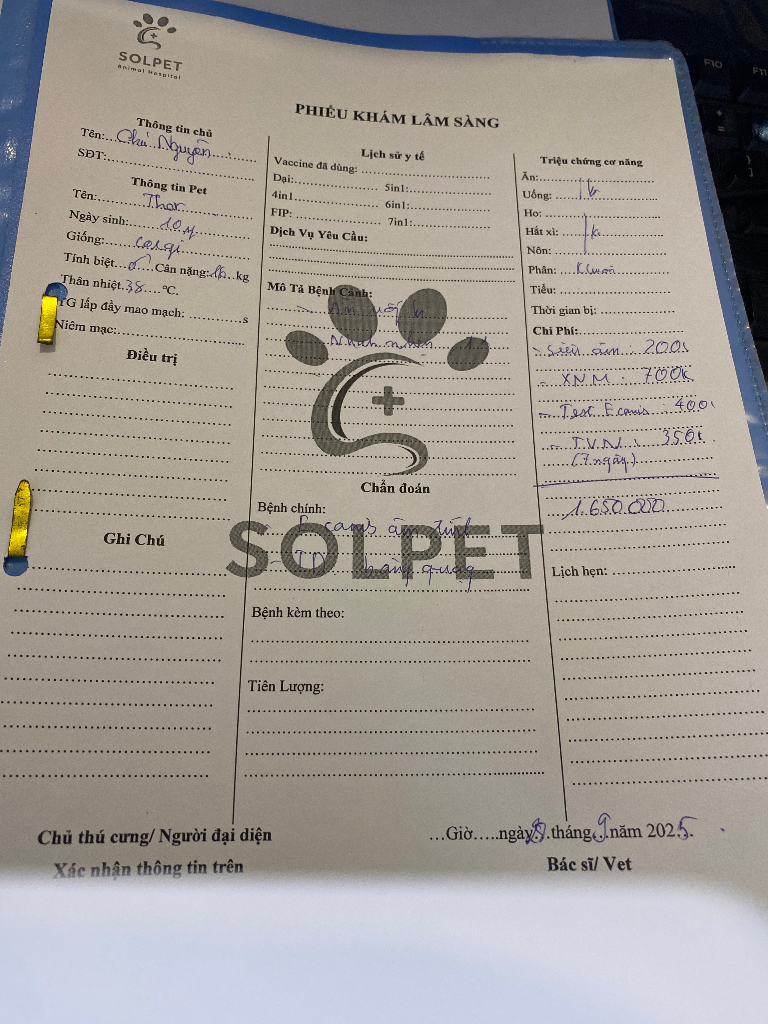 SOLPET
Animal Hospital
PHIẾU KHÁM LÂM SÀNG
Thông tin chủ
Tên:... Nguyên
SĐT:
Thông tin Pet
Tên: Thor
Ngày sinh: 10
Giống: corgi
Tính biệt...♂...Cân nặng:...kg
Thân nhiệt.38....°C.
TG lấp đầy mao mạch: ..........s
Niêm mạc:
Điều trị
Ghi Chú
Lịch sử y tế
Vaccine đã dùng:
Dại: 5in1:
4in1 6in1:
FIP: 7in1:
Dịch Vụ Yêu Cầu:
Mô Tả Bệnh Cảnh:
- Ăn uống k
SOLPET
Chẩn đoán
Bệnh chính:
- E canis âm tính
- TD: bàng quang
Bệnh kèm theo:
Tiên Lượng:
Triệu chứng cơ năng
Ăn:
Uống: k
Ho:
Hắt xì: k
Nôn:
Phân:
Tiểu:
Thời gian bị:
Chi Phí:
- Siêu âm: 200k
- XNM: 700k
- Test E canis: 400k
- TVN: 350k
(7 ngày)
1.650.000
Lịch hẹn:
Chủ thú cưng/ Người đại diện
Xác nhận thông tin trên
…Giờ…..ngày 8 tháng 9 năm 2025.
Bác sĩ/ Vet
F10
F11